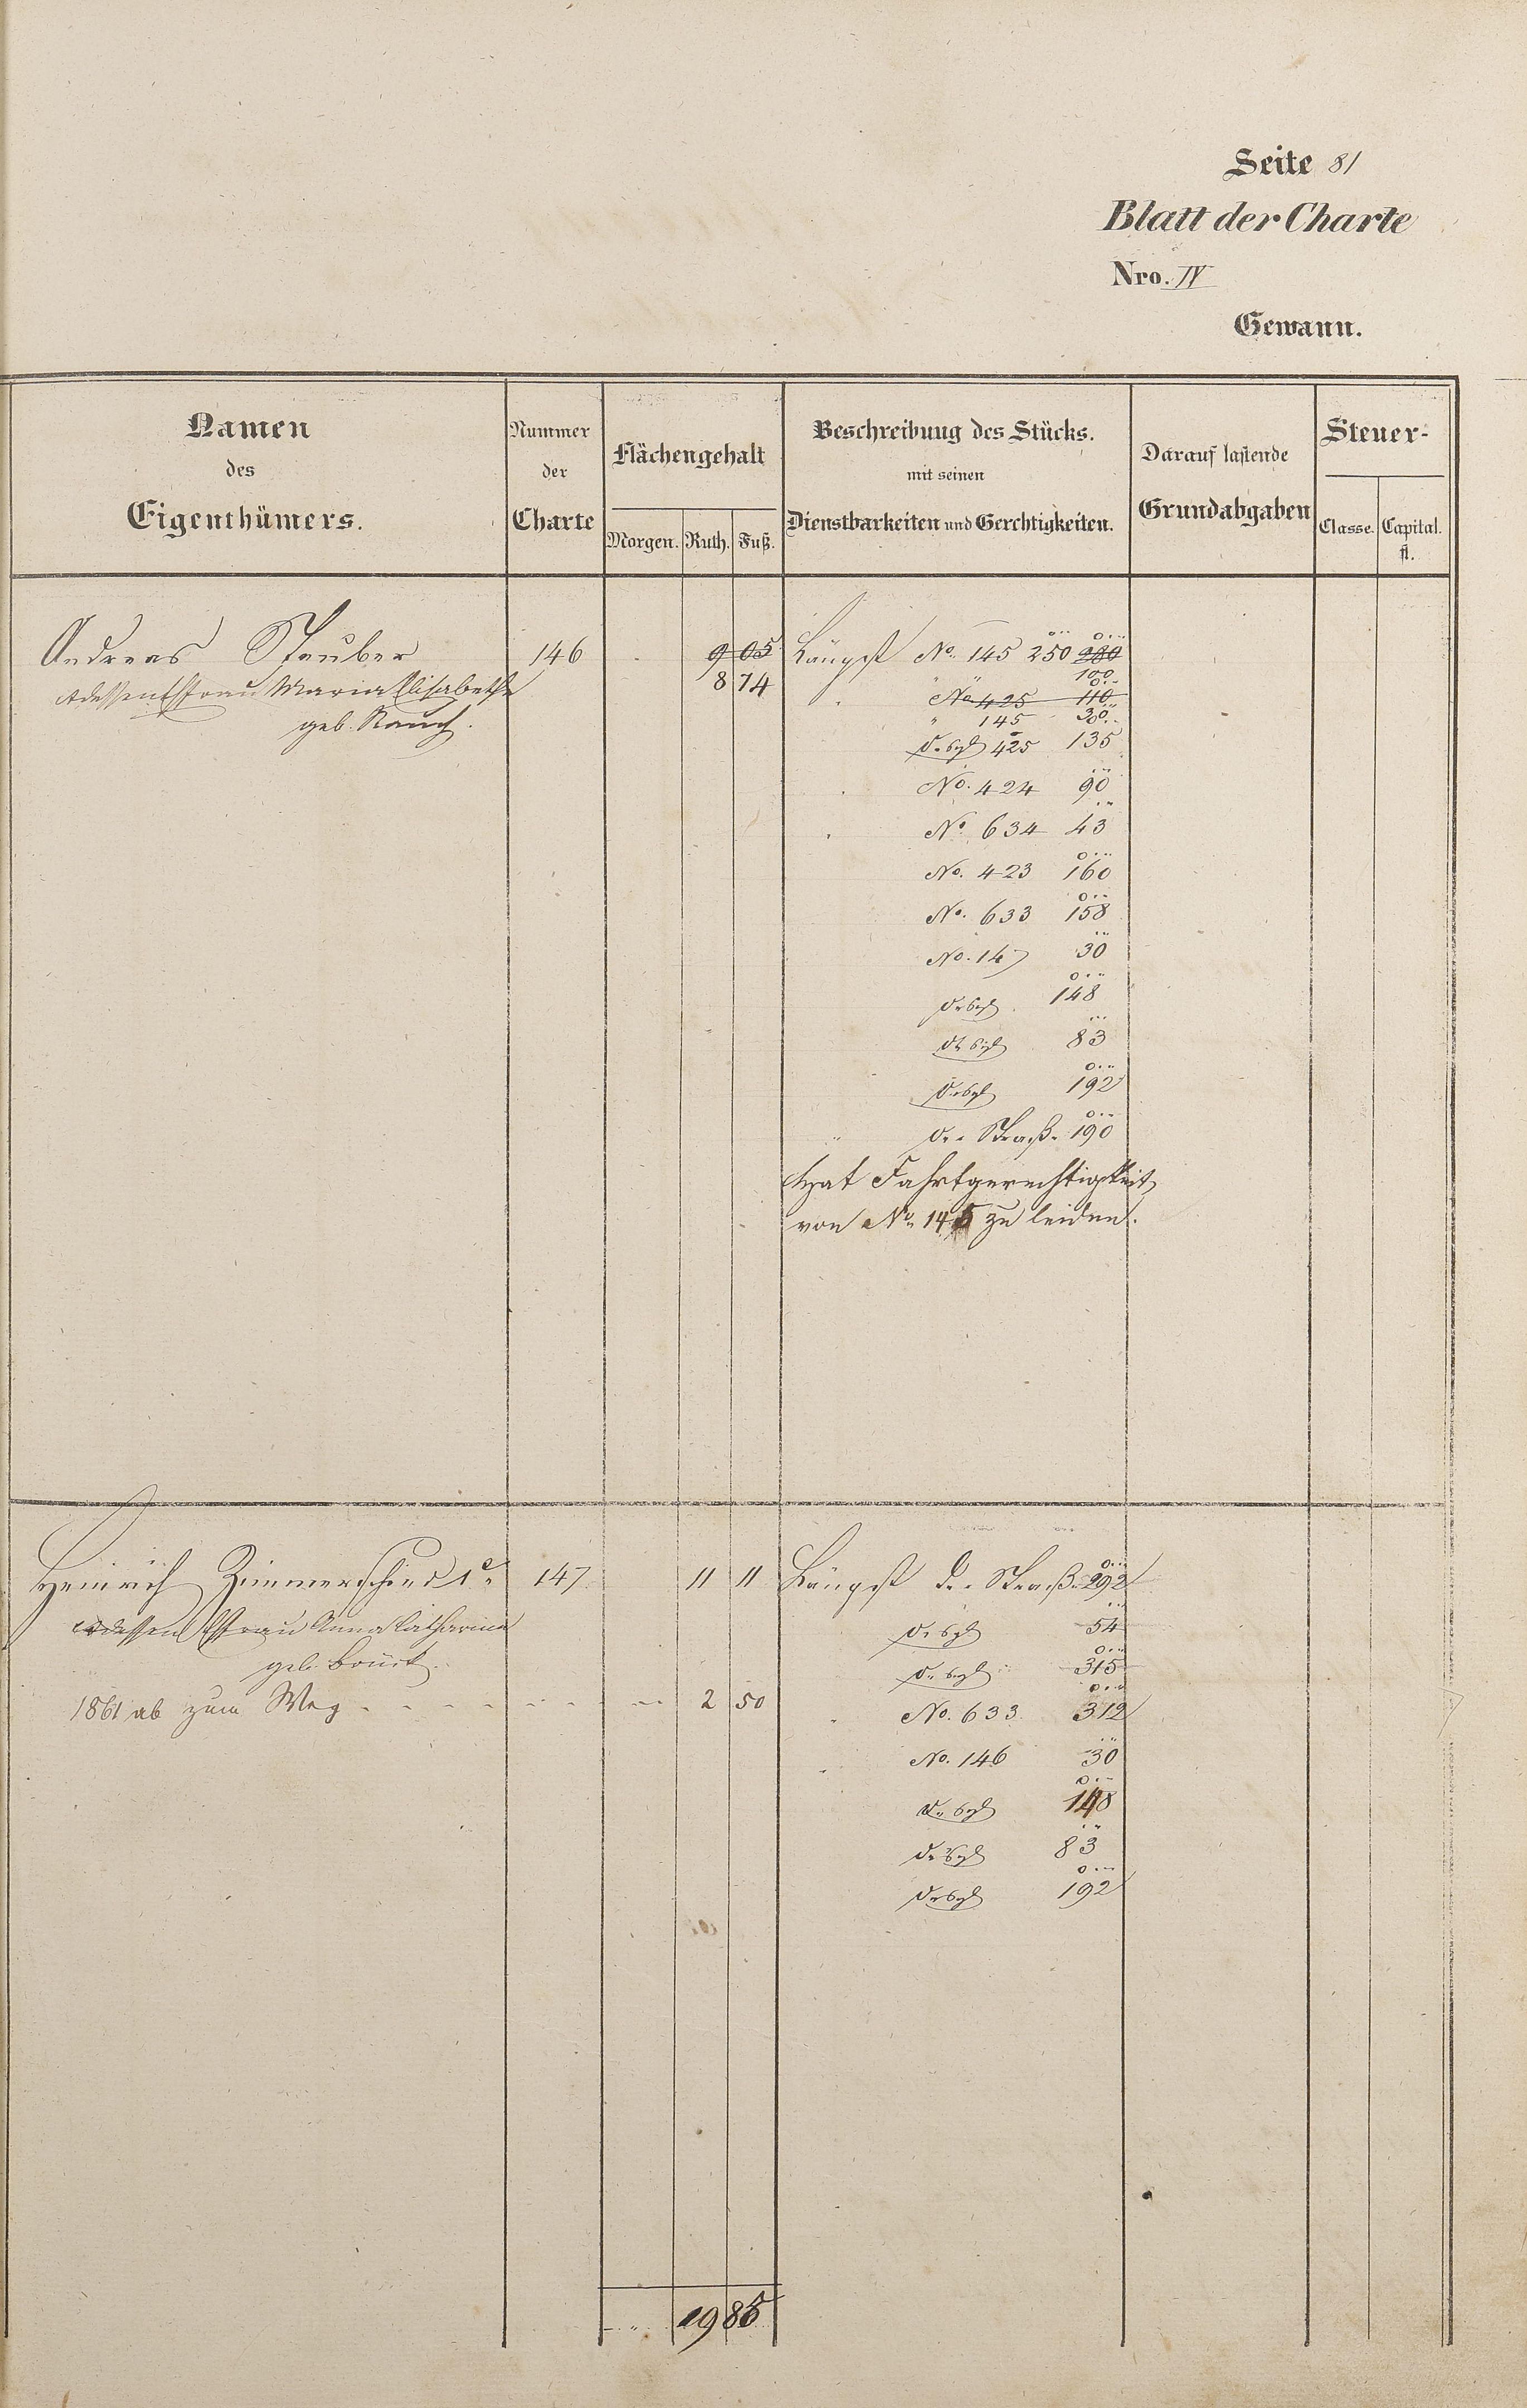 Seite 81
Blatt der Charte
Nro. IV
Gewann.
Namen des Eigenthümers.
Nummer der Charte
Flächengehalt
Morgen. Ruth. Fuß.
Beschreibung des Stücks. mit seinen Dienstbarkeiten und Gerchtigkeiten.
Darauf lastende Grundabgaben
Steuer-
Classe. Capital. fl.
Andreas Stauber 146 9 05 Längst No. 145 250 280
u dessen Ehefrau Maria Elisabethe 8 74 100
" No 425 110
geb. Rauch. " 145 30
desgl 425 135
No. 424 90
No. 634 43
No. 423 160
No. 633 158
No. 147 30
desgl 148
desgl 83
desgl 192
" der Straße 190
Hat Fahrtgerechtigkeit
von No. 145 zu leiden.
Heinrich Zimmerschied 1r 147 11 11 Längst der Straße 292
u dessen Ehefrau Anna Catharina desgl 54
geb. Brück. desgl 315
1861 ab zum Weg 2 50 No. 633 312
No. 146 30
desgl 148
desgl 83
desgl 192
" 19 85